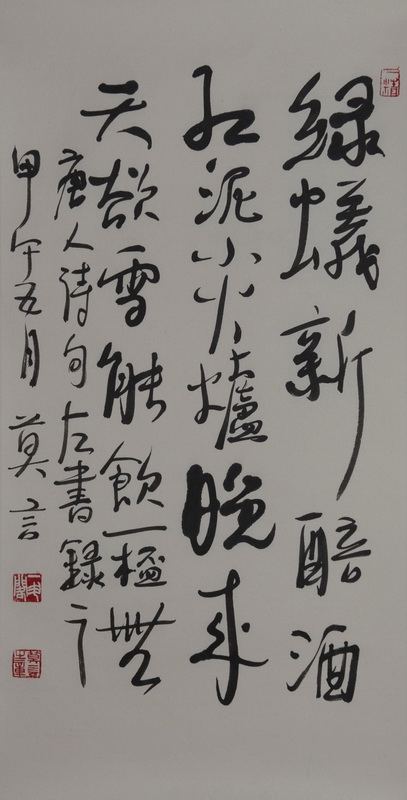 綠蟻新醅酒
紅泥小火爐晚来
天欲雪能飲一杯無
唐人詩句左書錄之
甲午五月 莫言